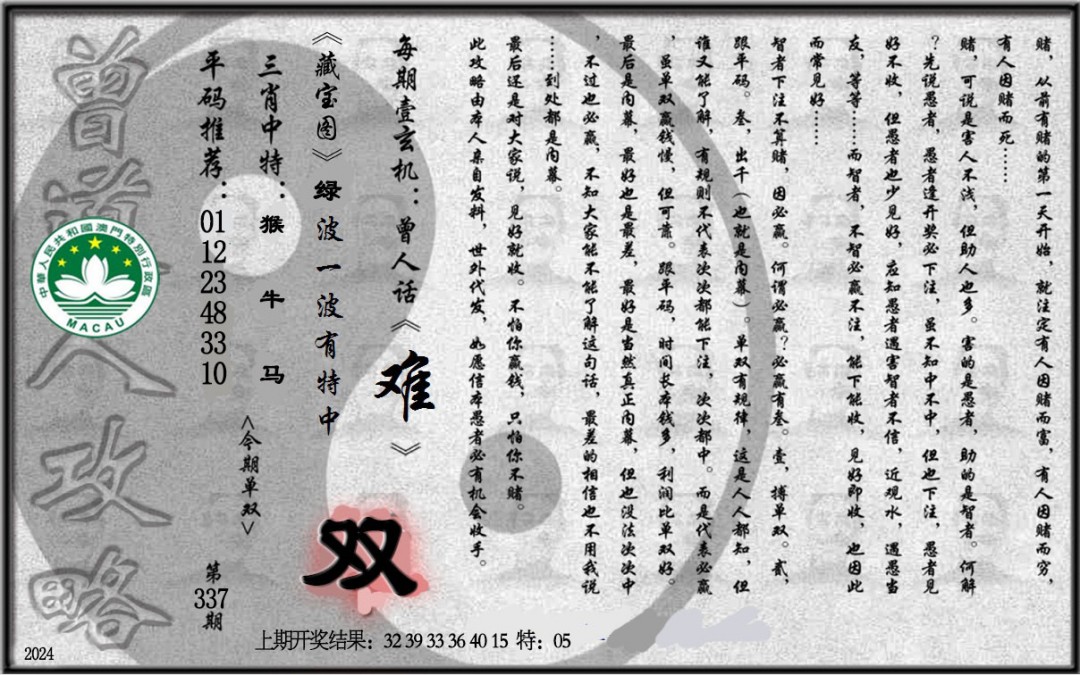 赌，从前有赌的第一天开始，就注定有人因赌而富，有人因赌而穷，
有人因赌而死……
赌，可说是害人不浅，但助人也多。害的是愚者，助的是智者。何解
？先说愚者，愚者逢开奖必下注，虽不知中不中，但也下注，愚者见
好不收，但愚者也少见好，应知愚者遇害智者不信，近观水，遇愚当
友，等等……而智者，不智必赢不注，能下能收，见好即收，也因此
而常见好……
智者下注不算赌，因必赢。何谓必赢？必赢有叁。壹，搏单双。贰，
跟平码。叁，出千（也就是内幕）。单双有规律，这是人人都知，但
谁又能了解，有规则不代表次次都能下注，次次都中。而是代表必赢
，虽单双赢钱慢，但可靠。跟平码，时间长本钱多，利润比单双好。
最后是内幕，最好也是最差，最好是当然真正内幕，但也没法次次中
，不过也必赢，不知大家能不能了解这句话，最差的相信也不用我说
……到处都是内幕。
最后还是对大家说，见好就收。不怕你赢钱，只怕你不赌。
此攻略由本人亲自发料，世外代发，如愿信本愚者必有机会收手。
每期壹玄机：曾人话《难》
《藏宝图》绿波一波有特中
三肖中特：猴 牛 马
平码推荐：01 12 23 48 33 10
<今期单双>
双
第337期
曾道人攻略
中華人民共和國澳門特別行政區
MACAU
上期开奖结果：32 39 33 36 40 15 特：05
2024